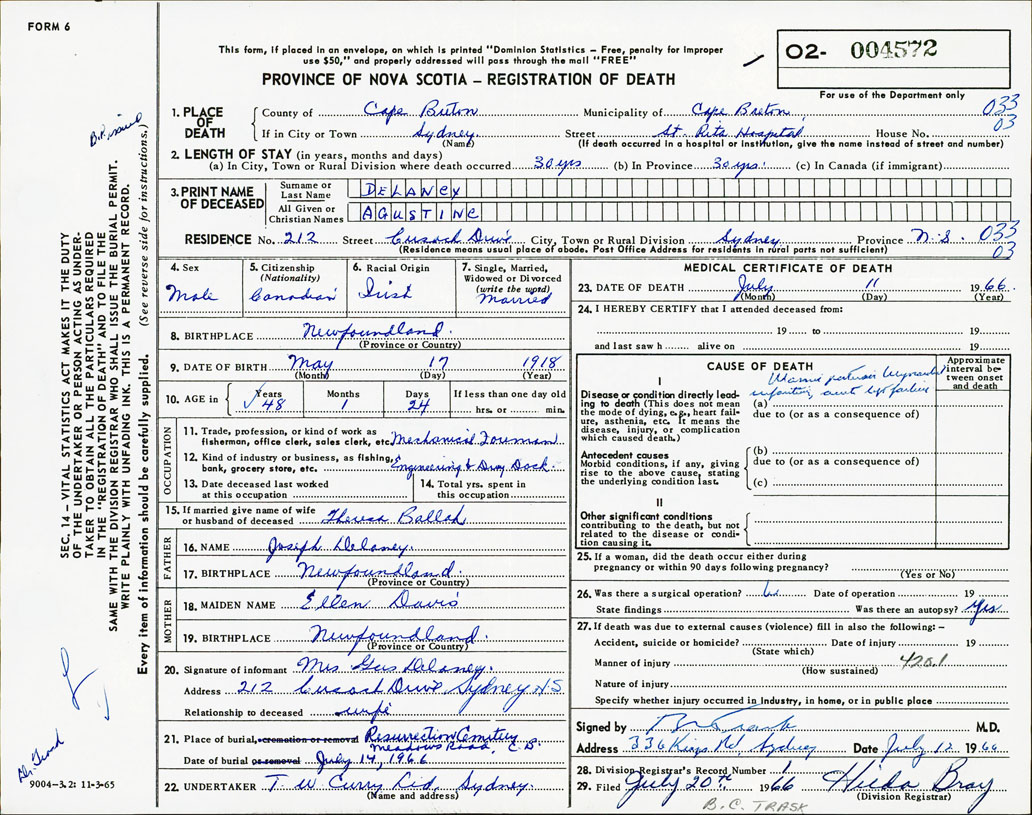 FORM 6
This form, if placed in an envelope, on which is printed "Dominion Statistics – Free, penalty for improper
use $50," and properly addressed will pass through the mail "FREE"
PROVINCE OF NOVA SCOTIA – REGISTRATION OF DEATH
02- 004572
For use of the Department only
1. PLACE OF DEATH { County of Cape Breton Municipality of Cape Breton 033
If in City or Town Sydney Street St. Rita Hospital House No. 03
(Name) (If death occurred in a hospital or institution, give the name instead of street and number)
2. LENGTH OF STAY (in years, months and days)
(a) In City, Town or Rural Division where death occurred 30 yrs (b) In Province 30 yrs. (c) In Canada (if immigrant)
3. PRINT NAME OF DECEASED { Surname or Last Name DELANEY
All Given or Christian Names AGUSTINE
RESIDENCE No. 212 Street Cusack Drive City, Town or Rural Division Sydney Province N.S. 033
(Residence means usual place of abode. Post Office Address for residents in rural parts not sufficient) 03
4. Sex
Male
5. Citizenship
(Nationality)
Canadian
6. Racial Origin
Irish
7. Single, Married,
Widowed or Divorced
(write the word)
Married
8. BIRTHPLACE Newfoundland.
(Province or Country)
9. DATE OF BIRTH May 17 1918
(Month) (Day) (Year)
10. AGE in { Years Months Days If less than one day old
48 1 24 hrs. or min.
OCCUPATION
11. Trade, profession, or kind of work as
fisherman, office clerk, sales clerk, etc. Mechanical Foreman
12. Kind of industry or business, as fishing,
bank, grocery store, etc. Engineering & Dry Dock
13. Date deceased last worked
at this occupation
14. Total yrs. spent in
this occupation
15. If married give name of wife
or husband of deceased Theresa Ballah
FATHER
16. NAME Joseph Delaney.
17. BIRTHPLACE Newfoundland.
(Province or Country)
MOTHER
18. MAIDEN NAME Ellen Davis
19. BIRTHPLACE Newfoundland.
(Province or Country)
20. Signature of informant Mrs Gus Delaney.
Address 212 Cusack Drive Sydney N.S.
Relationship to deceased wife
21. Place of burial, cremation or removal Resurrection Cemetery
Meadows Road, C.B.
Date of burial or removal July 14, 1966
22. UNDERTAKER T W Curry Ltd, Sydney.
(Name and address)
MEDICAL CERTIFICATE OF DEATH
23. DATE OF DEATH July 11 1966.
(Month) (Day) (Year)
24. I HEREBY CERTIFY that I attended deceased from:
19 to 19
and last saw h alive on 19
CAUSE OF DEATH
Approximate
interval be-
tween onset
and death
I
Disease or condition directly lead-
ing to death (This does not mean
the mode of dying, e.g., heart fail-
ure, asthenia, etc. It means the
disease, injury, or complication
which caused death.)
(a)
due to (or as a consequence of)
Antecedent causes
Morbid conditions, if any, giving
rise to the above cause, stating
the underlying condition last.
(b)
due to (or as a consequence of)
(c)
II
Other significant conditions
contributing to the death, but not
related to the disease or condi-
tion causing it.
25. If a woman, did the death occur either during
pregnancy or within 90 days following pregnancy?
(Yes or No)
26. Was there a surgical operation? Date of operation 19
State findings Was there an autopsy? Yes
27. If death was due to external causes (violence) fill in also the following: –
Accident, suicide or homicide? Date of injury 19
(State which)
Manner of injury 420.1
(How sustained)
Nature of injury
Specify whether injury occurred in industry, in home, or in public place
Signed by M.D.
Address 336 Kings Rd Sydney Date July 12 1966
28. Division Registrar's Record Number 1
29. Filed July 20th 1966 Hilda Bray
(Division Registrar)
B.C. TRASK
SEC. 14 – VITAL STATISTICS ACT MAKES IT THE DUTY
OF THE UNDERTAKER OR PERSON ACTING AS UNDER-
TAKER TO OBTAIN ALL THE PARTICULARS REQUIRED
IN THE "REGISTRATION OF DEATH" AND TO FILE THE
SAME WITH THE DIVISION REGISTRAR WHO SHALL ISSUE THE BURIAL PERMIT.
WRITE PLAINLY WITH UNFADING INK. THIS IS A PERMANENT RECORD.
Every item of information should be carefully supplied. (See reverse side for instructions.)
9004–3.2: 11-3-65